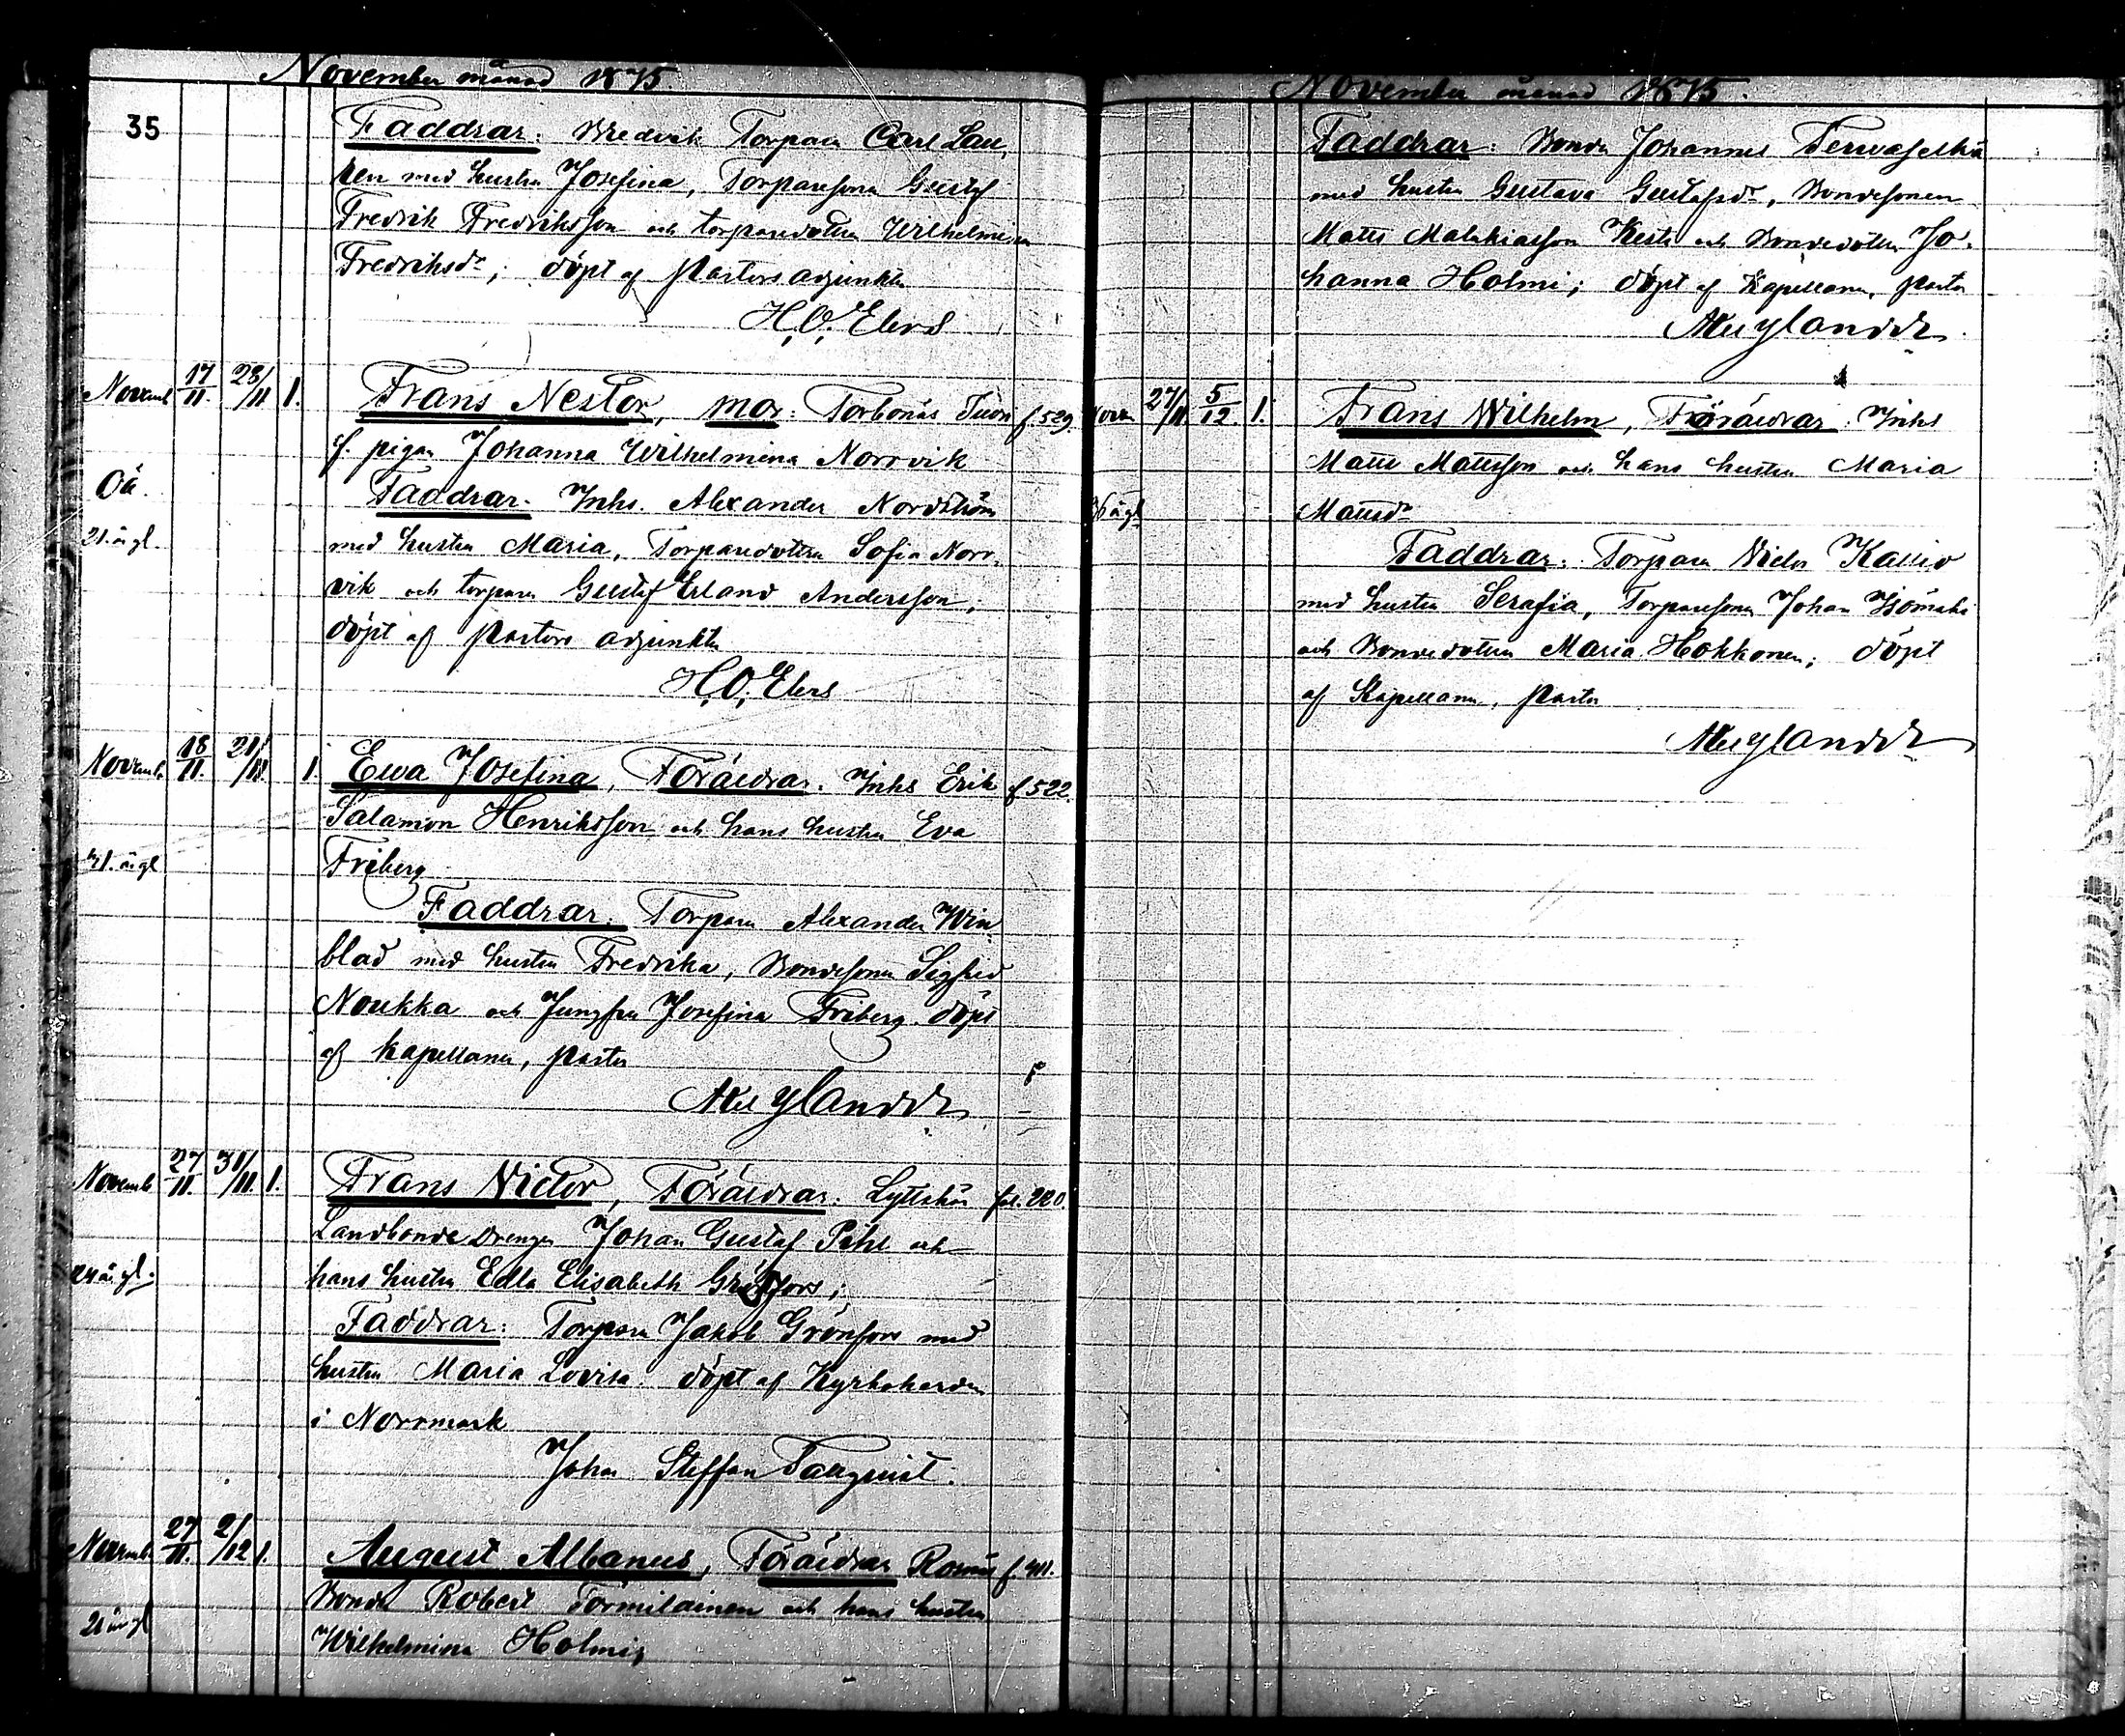 November månad 1875.
35
Faddrar: Torpare Carl Lau,
ren med hustru Josefina, Torparesonen Gustaf
Fredrik Fredriksson och torparedottren Wilhelmina
Fredriksdr; döpt af Pastors adjunkten
H.O. Elers
Novemb 17/11. 28/11 1. Frans Nestor, mor: Torbonäs f. 529.
f. pigan Johanna Wilhelmina Norrvik
Oä.
Faddrar. Inhs. Alexander Nordström
21. årgl. med hustru Maria, Torparedottren Sofia Norr,
vik och torparen Gustaf Erland Andersson;
döpt af Pastors adjunkten
H.O. Elers
Novemb. 18/11. 21/11. 1. Ewa Josefina, Föräldrar. Inhs Erik f 522.
Salamon Henriksson och hans hustru Eva
41. årgl Friberg
Faddrar: Torparen Alexander Win,
blad med hustru Fredrika, Bondesonen Sigfrid
Noukka och Jungfru Josefina Friberg. döpt
af kapellanen, Pastor
Mylander
Novemb 27/11. 31/11. 1. Frans Victor, Föräldrar: Lyttskär fol. 220.
Landbonde Drengen Johan Gustaf Pihl och
24 år gl. hans hustru Edla Elisabeth Grönfors;
Faddrar: Torparen Jakob Grönfors med
hustru Maria Lovisa. döpt af Kyrkoherden
i Norrmark
Johan Steffan Tallqvist.
Novemb 27/11. 2/12 1. August Albanus, Föräldrar f. 411.
Bonden Robert Törmilainen och hans hustru
21 år gl Wilhelmina Holmi,
November månad 1875.
Faddrar: Bonden Johannes
med hustru Gustava Gustafsdr, Bondesonen
Matts Malakiasson Kesti och Bondedottren Jo,
hanna Holmi; döpt af Kapellanen, Pastor
Mylander
Novem 27/11. 5/12. 1. Frans Wilhelm, Föräldrar. Inhs
Matts Mattsson och hans hustru Maria
36 årgl Mattsdr
Faddrar: Torparen Victor Kallio
med hustru Serafia, Torparesonen Johan
och Bondedottren Maria Hokkonen; döpt
af Kapellanen, Pastor
Mylander